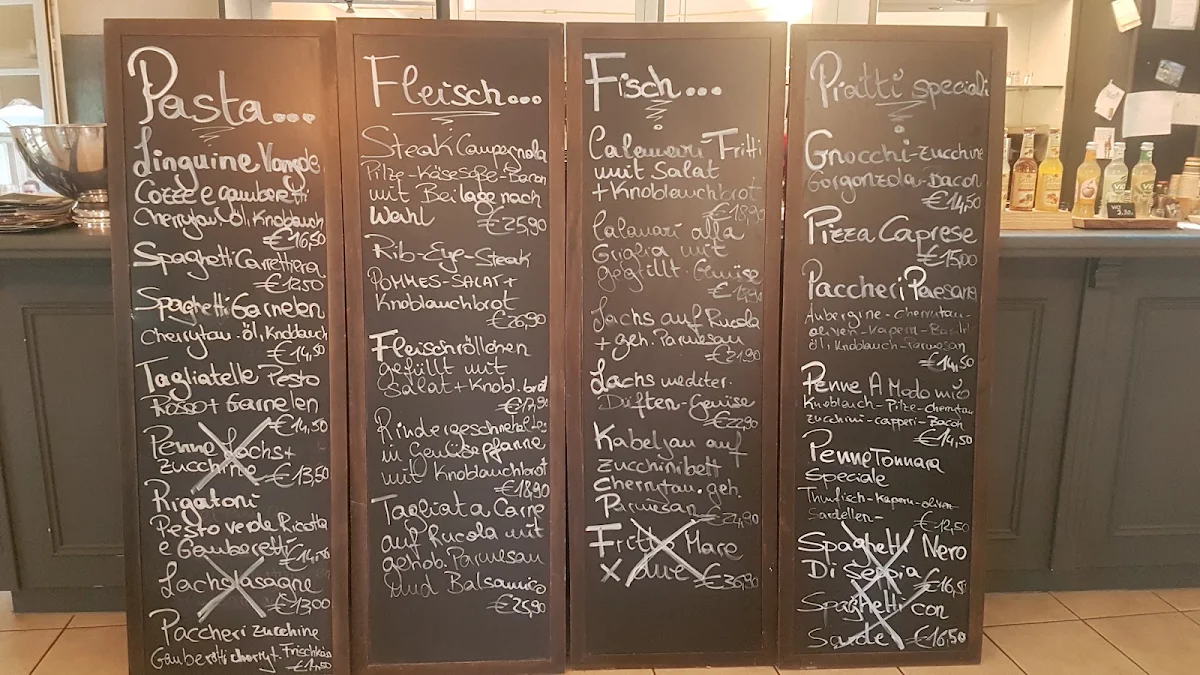 Pasta...
Linguine Vongole
Cozze e gamberetti
Cherrytom. Öl, Knoblauch
€16,50
Spaghetti Carrettiera
€12,50
Spaghetti Garnelen
Cherrytom.-öl, Knoblauch
€14,50
Tagliatelle Pesto
Rosso + Garnelen
€14,50
Penne Lachs +
zucchine €13,50
Rigatoni
Pesto verde Ricotta
e Gamberetti €14,50
Lachslasagne
€13,00
Paccheri zucchine
Gamberetti cherryt. Frischkäse
Fleisch...
Steak Campagnola
Pilze-Käsesoße-Bacon
mit Beilage nach
Wahl €25,90
Rib-Eye-Steak
POMMES-SALAT+
Knoblauchbrot
€26,90
Fleischröllchen
gefüllt mit
Salat + Knobl.brot
€17,90
Rindergeschnetzeltes
in Gemüsepfanne
mit Knoblauchbrot
€18,90
Tagliata Carne
auf Rucola mit
gehob. Parmesan
und Balsamico
€25,90
Fisch...
Calamari Fritti
mit Salat
+ Knoblauchbrot
€18,90
Calamari alla
Griglia mit
gegrillt. Gemüse
Lachs auf Rucola
+ geh. Parmesan
€21,90
Lachs mediter.
Düften-Gemüse
€22,90
Kabeljau auf
zucchinibett
cherrytom. geh.
Parmesan €24,90
Fritto Mare
x due €36,90
Piatti speciali
Gnocchi-zucchine
Gorgonzola-Bacon
€14,50
Pizza Caprese
€15,00
Paccheri Paesana
Aubergine-cherrytom-
oliven-Kapern-Basil
öl, Knoblauch-Parmesan
€14,50
Penne A Modo mio
Knoblauch-Pilze-cherrytom
zucchini-capperi-Bacon
€14,50
Penne Tonnara
Speciale
Thunfisch-Kapern-oliven
Sardellen-
€12,50
Spaghetti Nero
Di Seppia €16,50
Spaghetti con
Sarde €16,50